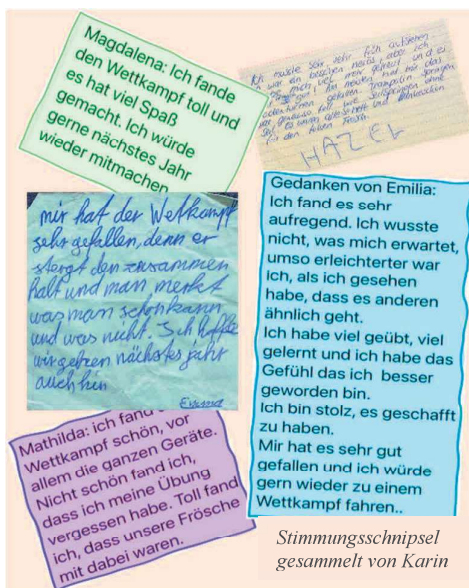 Magdalena: Ich fande
den Wettkampf toll und
es hat viel Spaß
gemacht. Ich würde
gerne nächstes Jahr
wieder mitmachen
Ich musste sehr sehr früh aufstehen
war ein bisschen nervös, aber ich
mich viel mehr gefreut und es
gut. Am meisten hat mir das
Bodenturnen gefallen. Trampolin springen
war genauso toll wie Seilspringen und
HAZEL
mir hat der Wetkampf
sehr gefallen, denn er
stergt den zusammen
halt und man merkt
was man schon kann
und was nicht. Ich hoffe
wir gehen nächstes jahr
auch hin
Emma
Gedanken von Emilia:
Ich fand es sehr
aufregend. Ich wusste
nicht, was mich erwartet,
umso erleichterter war
ich, als ich gesehen
habe, dass es anderen
ähnlich geht.
Ich habe viel geübt, viel
gelernt und ich habe das
Gefühl das ich besser
geworden bin.
Ich bin stolz, es geschafft
zu haben.
Mir hat es sehr gut
gefallen und ich würde
gern wieder zu einem
Wettkampf fahren..
Mathilda: ich fand
Wettkampf schön, vor
allem die ganzen Geräte.
Nicht schön fand ich,
dass ich meine Übung
vergessen habe. Toll fand
ich, dass unsere Frösche
mit dabei waren.
Stimmungsschnipsel
gesammelt von Karin